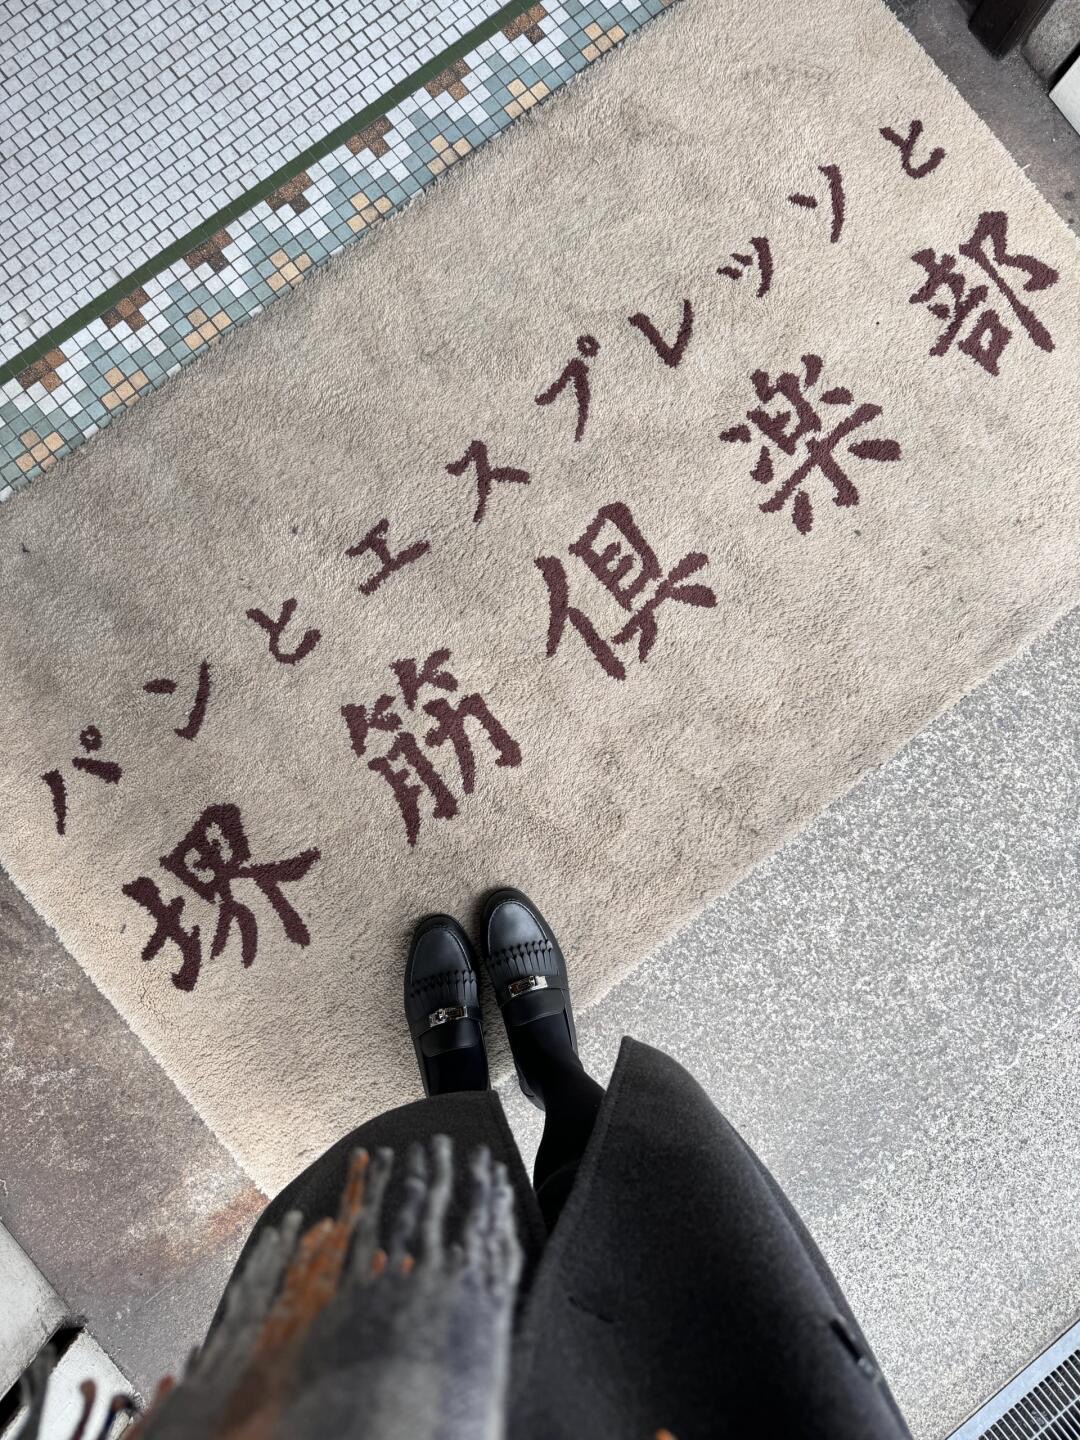 パンとエスプレッソと
堺筋倶楽部